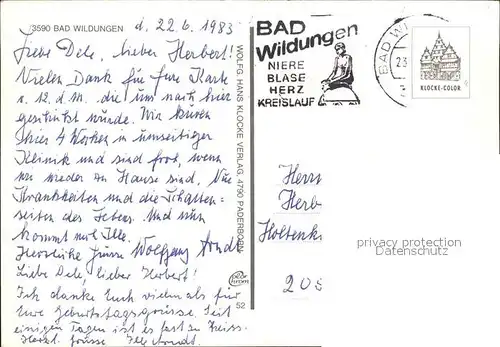 3590 BAD WILDUNGEN d. 22.6.1983
Liebe Dele, lieber Herbert!
Vielen Dank für Eure Karte
v. 12. d. M. die uns nach hier
geschickt wurde. Wir kuren
hier 4 Wochen in umseitiger
Klinik und sind froh, wenn
wir wieder zu Hause sind. Nur
Krankheiten und die Schatten-
seiten des Lebens. Und nun
kommt noch Ille.
Herzliche Grüsse Wolfgang Arndt
Liebe Dele, lieber Herbert!
Ich danke Euch vielmals für
Eure Geburtstagsgrüsse. Seit
einigen Tagen ist es fast zu heiss.
Herzl. Grüsse Ille Arndt.
WOLFG. HANS KLOCKE VERLAG, 4790 PADERBORN
52
BAD
Wildungen
NIERE
BLASE
HERZ
KREISLAUF
BAD WI
23
KLOCKE-COLOR
Herrn
Herb
Holtenk
205
privacy protection
watermark